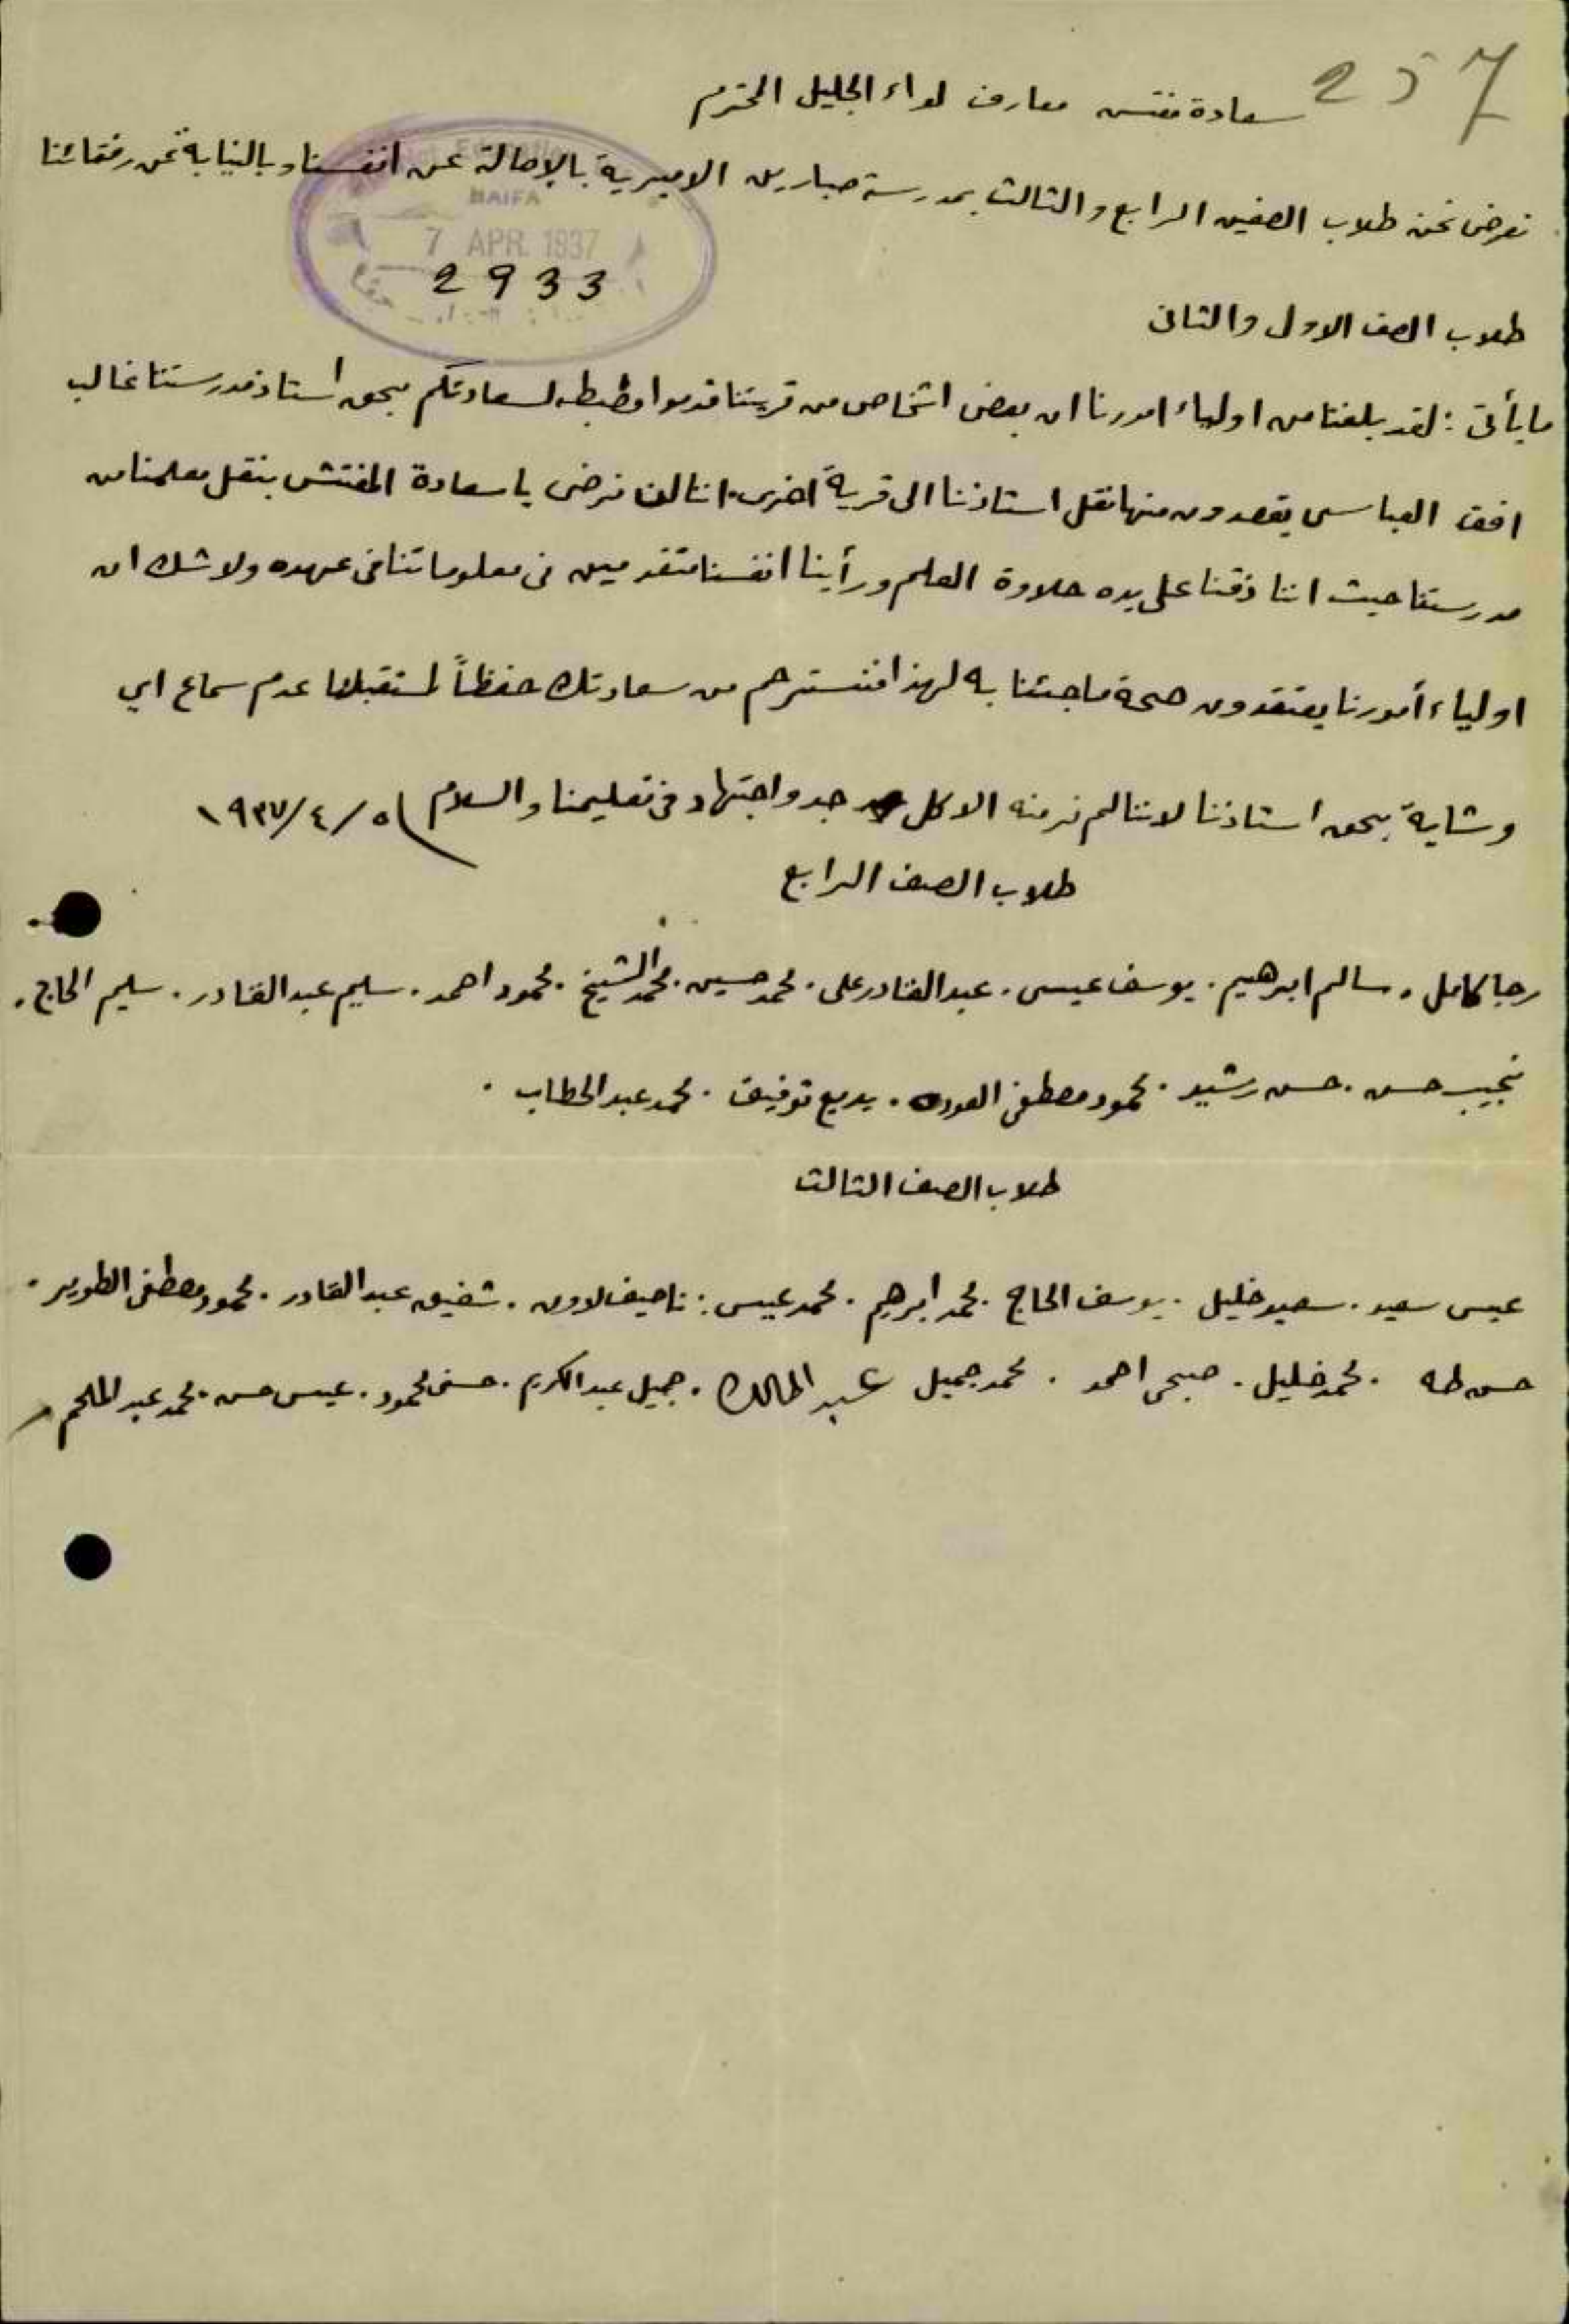 257
سعادة مفتش معارف لواء الجليل المحترم
نعرض نحن طلاب الصفين الرابع والثالث بمدرسة صبارين الاميرية بالاصالة عن انفسنا وبالنيابة عن رفقائنا
HAIFA
7 APR. 1937
2933
طلاب الصف الاول والثاني
ما يأتي : لقد بلغنا من اولياء امورنا ان بعض اشخاص من قريتنا قدموا مظبطه لسعادتكم بحق استاذ مدرستنا غالب
افق العباسي يقصدون منها نقل استاذنا الى قرية اخرى. اننا لن نرضى يا سعادة المفتش بنقل معلمنا من
مدرستنا حيث اننا ذقنا على يده حلاوة العلم ورأينا انفسنا متقدمين في معلوماتنا في عهده ولا شك ان
اولياء أمورنا يعتقدون صحة ما جئنا به لهذا نسترحم من سعادتك حفظاً لمستقبلنا عدم سماع اي
وشاية بحق استاذنا لاننا لم نر منه الا كل جد واجتهاد في تعليمنا والسلام ٥/٤/١٩٣٧
طلاب الصف الرابع
رجا كامل . سالم ابرهيم . يوسف عيسى . عبد القادر علي . محمد حسين . محمد الشيخ . محمود احمد . سليم عبد القادر . سليم الحاج .
نجيب حسن . حسن رشيد . محمود مصطفى العوده . بديع توفيق . محمد عبد الخطاب .
طلاب الصف الثالث
عيسى سعيد . سعيد خليل . يوسف الحاج . محمد ابرهيم . محمد عيسى . ناصيف لاوون . شفيق عبد القادر . محمود مصطفى الطوير .
حسن طه . محمد خليل . صبحي احمد . محمد جميل عبد المالك . جميل عبد الكريم . حسني محمود . عيسى حسن . محمد عبد الملحم